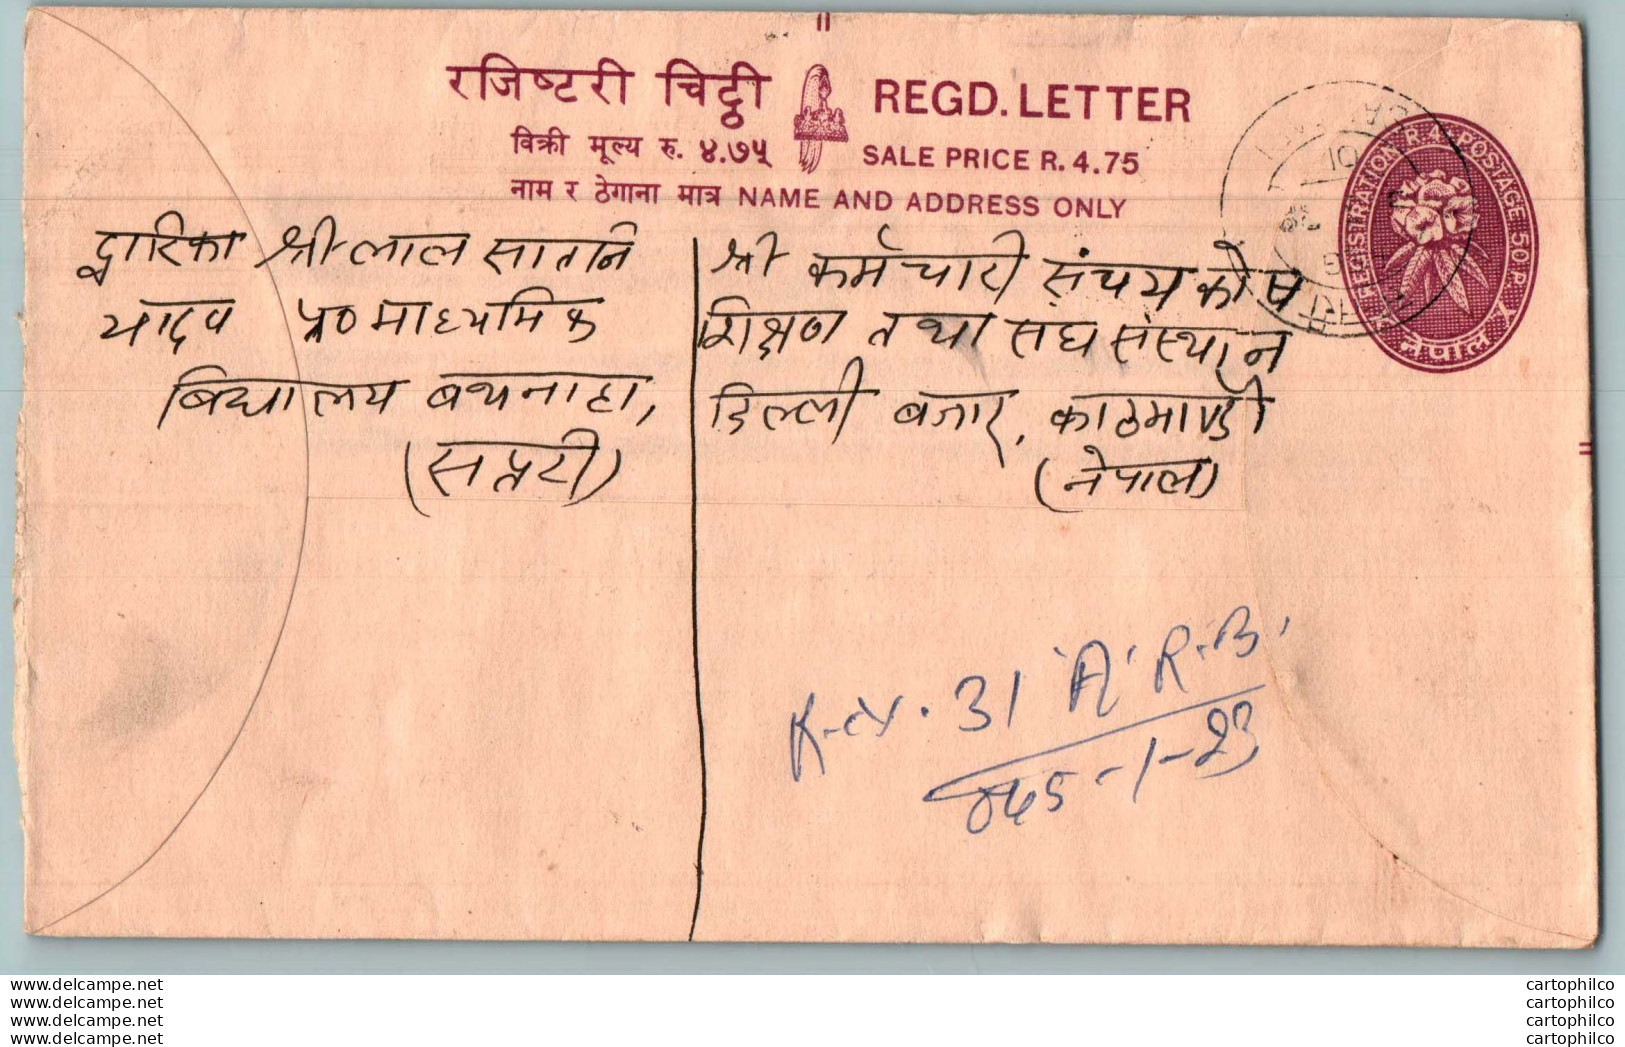 रजिष्टरी चिट्ठी REGD. LETTER
विक्री मूल्य रु. ४.७५ SALE PRICE R. 4.75
नाम र ठेगाना मात्र NAME AND ADDRESS ONLY
REGISTRATION R. A. POSTAGE 50 P. X.
नेपाल
द्वारिका श्रीलाल
यादव प्र० माध्यमिक
बिद्यालय बथनाहा,
(सप्तरी)
श्री कर्मचारी संचय कोष
शिक्षण तथा संघ संस्थान
डिल्ली बजार, काठमाण्डौ
(नेपाल)
31 'A' R.B.
045-1-23
www.delcampe.net
www.delcampe.net
www.delcampe.net
www.delcampe.net
cartophilco
cartophilco
cartophilco
cartophilco